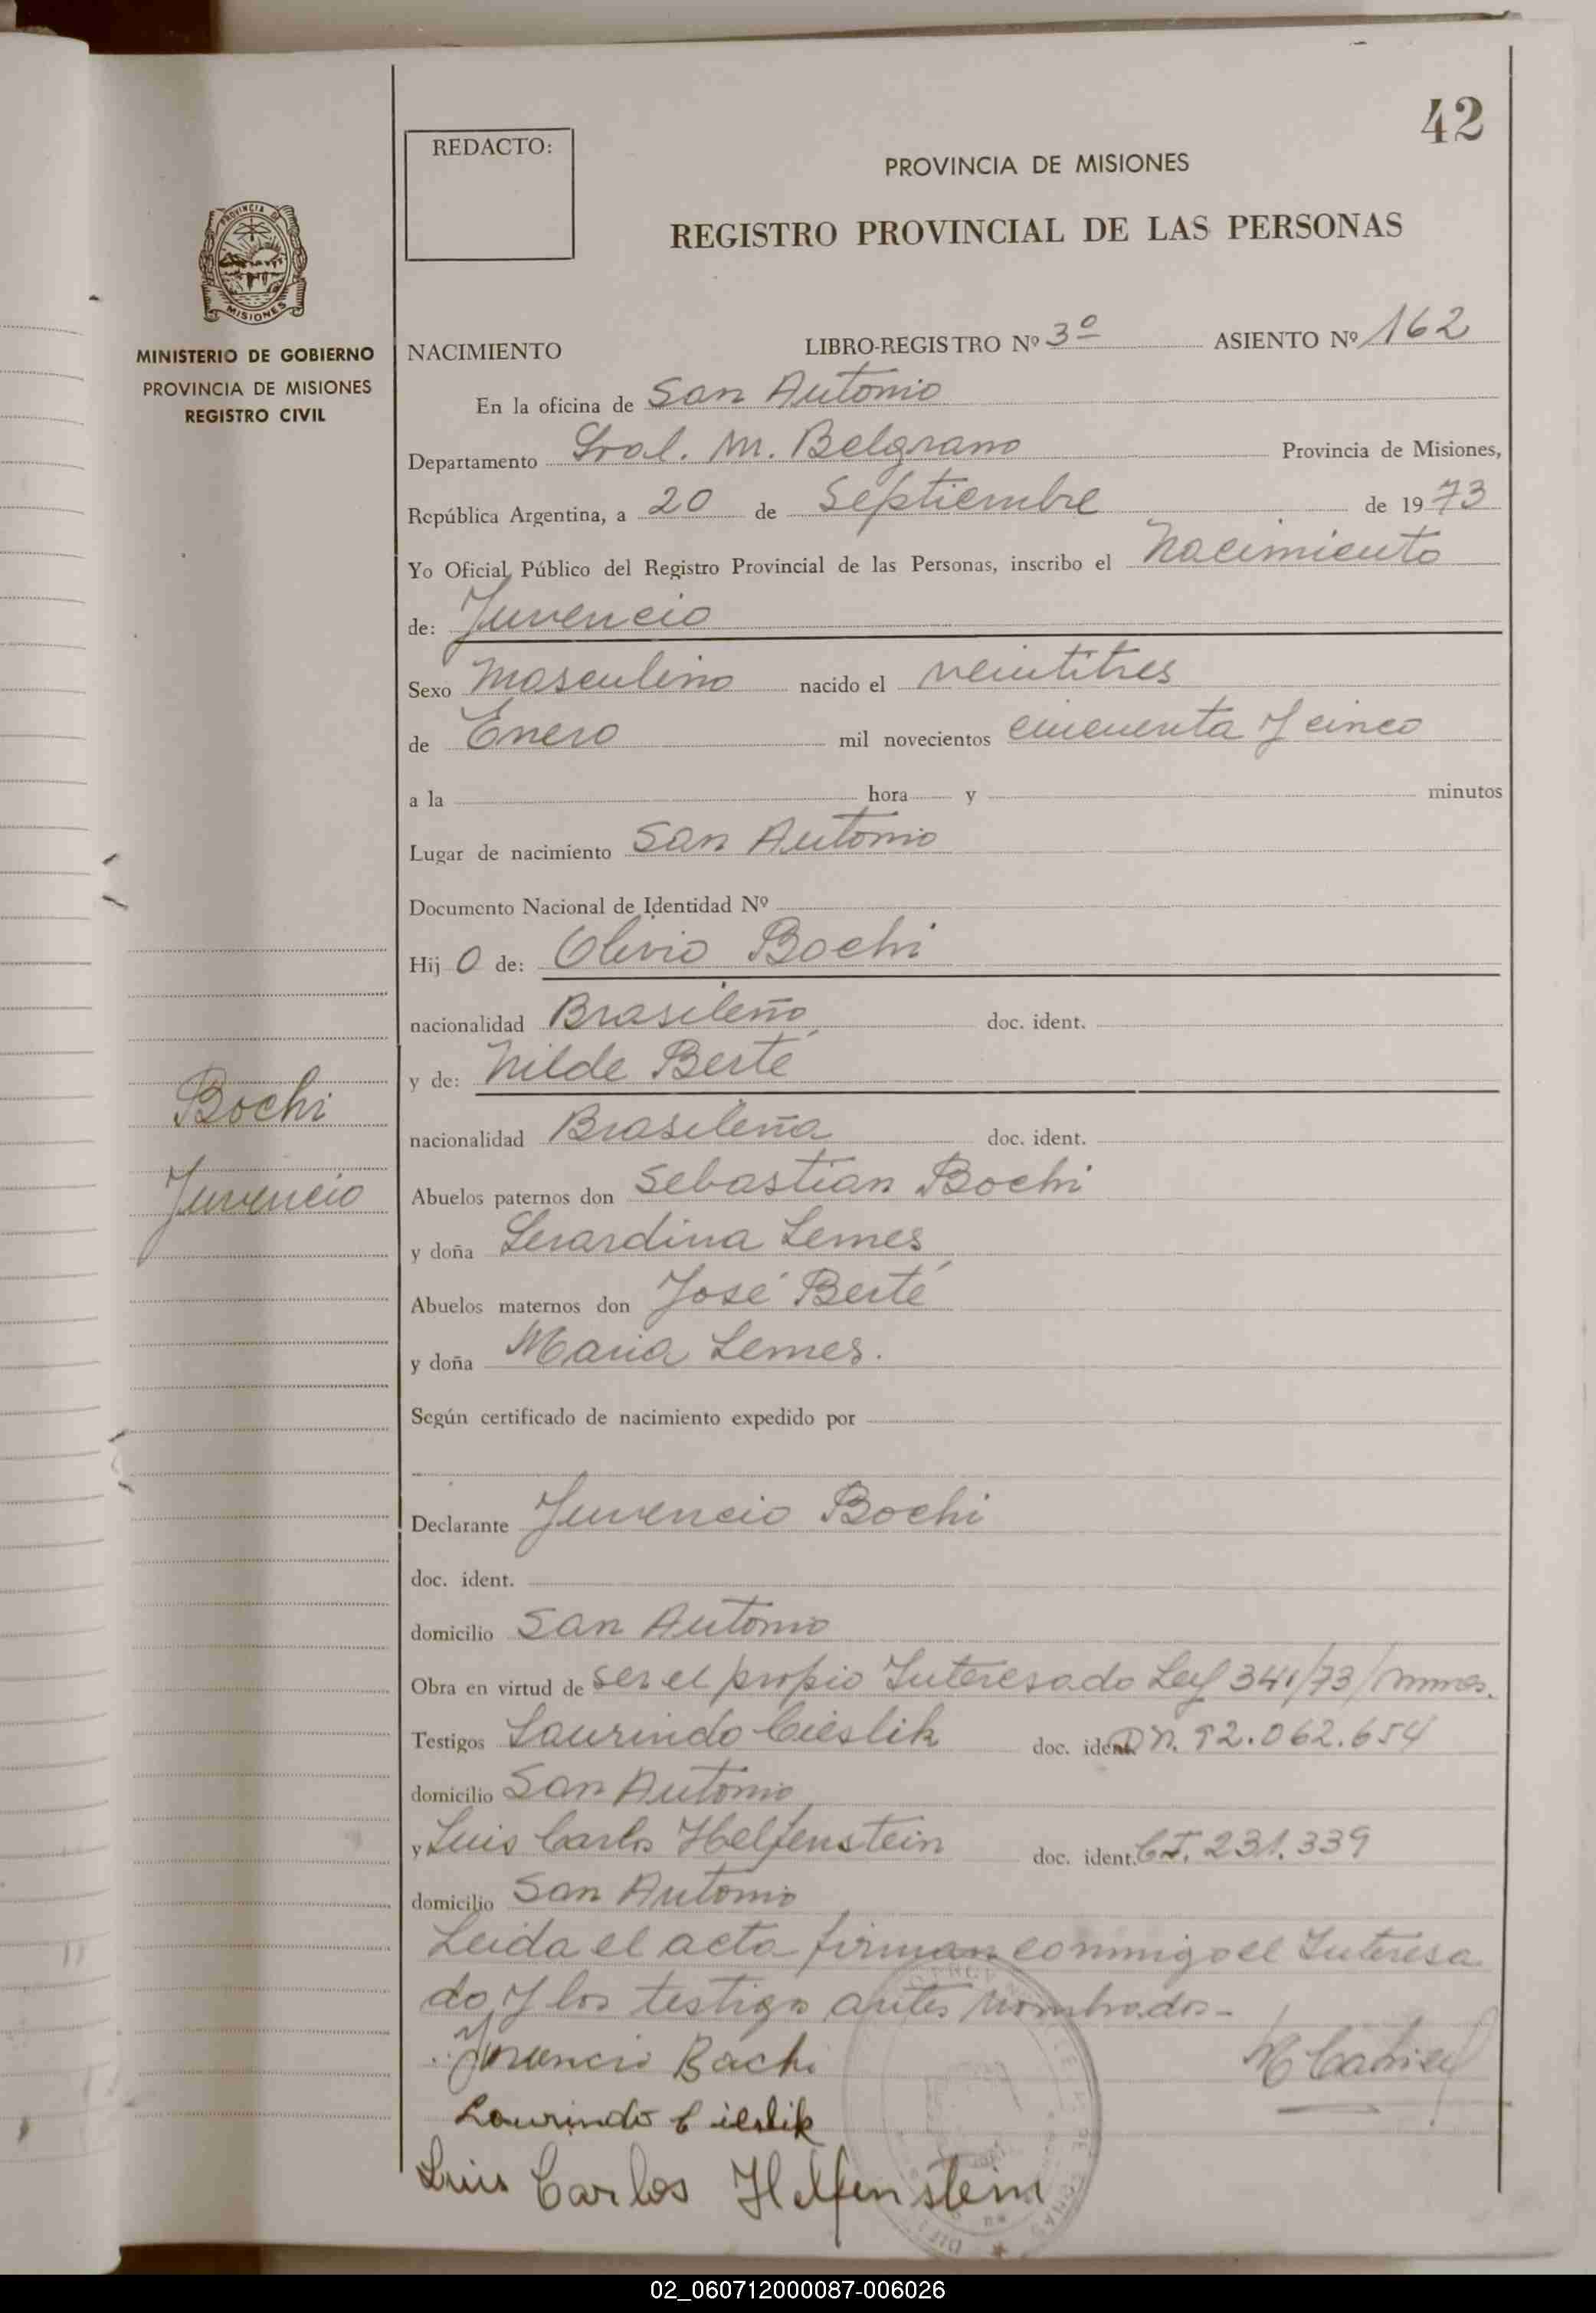 42
REDACTO:
PROVINCIA DE MISIONES
REGISTRO PROVINCIAL DE LAS PERSONAS
PROVINCIA DE
MISIONES
MINISTERIO DE GOBIERNO
PROVINCIA DE MISIONES
REGISTRO CIVIL
NACIMIENTO LIBRO-REGISTRO Nº 3º ASIENTO Nº 162
En la oficina de San Antonio
Departamento Gral. M. Belgrano Provincia de Misiones,
República Argentina, a 20 de Septiembre de 1973
Yo Oficial Público del Registro Provincial de las Personas, inscribo el Nacimiento
de: Juvencio
Sexo Masculino nacido el veintitres
de Enero mil novecientos cincuenta y cinco
a la hora y minutos
Lugar de nacimiento San Antonio
Documento Nacional de Identidad Nº
Hij o de: Olivio Bochi
nacionalidad Brasileño doc. ident.
y de: Nilde Berté
nacionalidad Brasileña doc. ident.
Bochi
Juvencio
Abuelos paternos don Sebastian Bochi
y doña Lerardina Lemes
Abuelos maternos don José Berté
y doña Maria Lemes.
Según certificado de nacimiento expedido por
Declarante Juvencio Bochi
doc. ident.
domicilio San Antonio
Obra en virtud de ser el propio Interesado Ley 341/73/Mnes.
Testigos Laurindo Cieslik doc. ident. DN. 92.062.654
domicilio San Antonio
y Luis Carlos Helfenstein doc. ident. CI. 231.339
domicilio San Antonio
Leida el acta firman conmigo el Interesa
do, y los testigos antes nombrados-
Bachi
Laurindo Cieslik
Luis Carlos Helfenstein
02_060712000087-006026